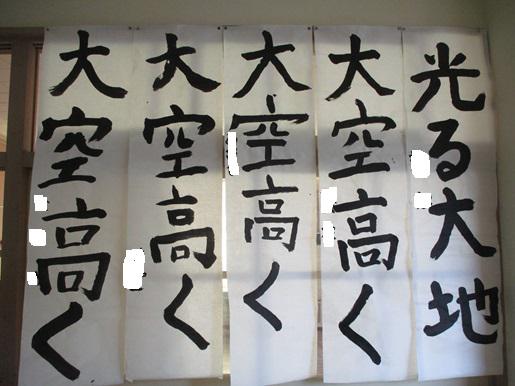 光る大地
大空高く
大空高く
大空高く
大空高く